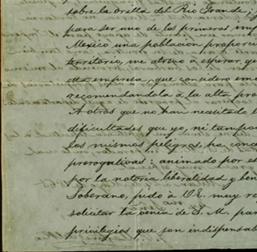 sobre la orilla del Rio Grande,
para ser uno de los primeros im
Mexico una poblacion proporci
territorio, me atrevo á esperar q
empresa, que considero em
recomendandola á su alta pro
A otros que no han necesitado
dificultades que yo, ni tampoco
los mismos peligros, ha conce
prerogativas: animado por es
por la notoria liberalidad y ben
Soberano, pido á V.E. muy re
solicitar la venia de S. M. para
privilegios que son indispensab